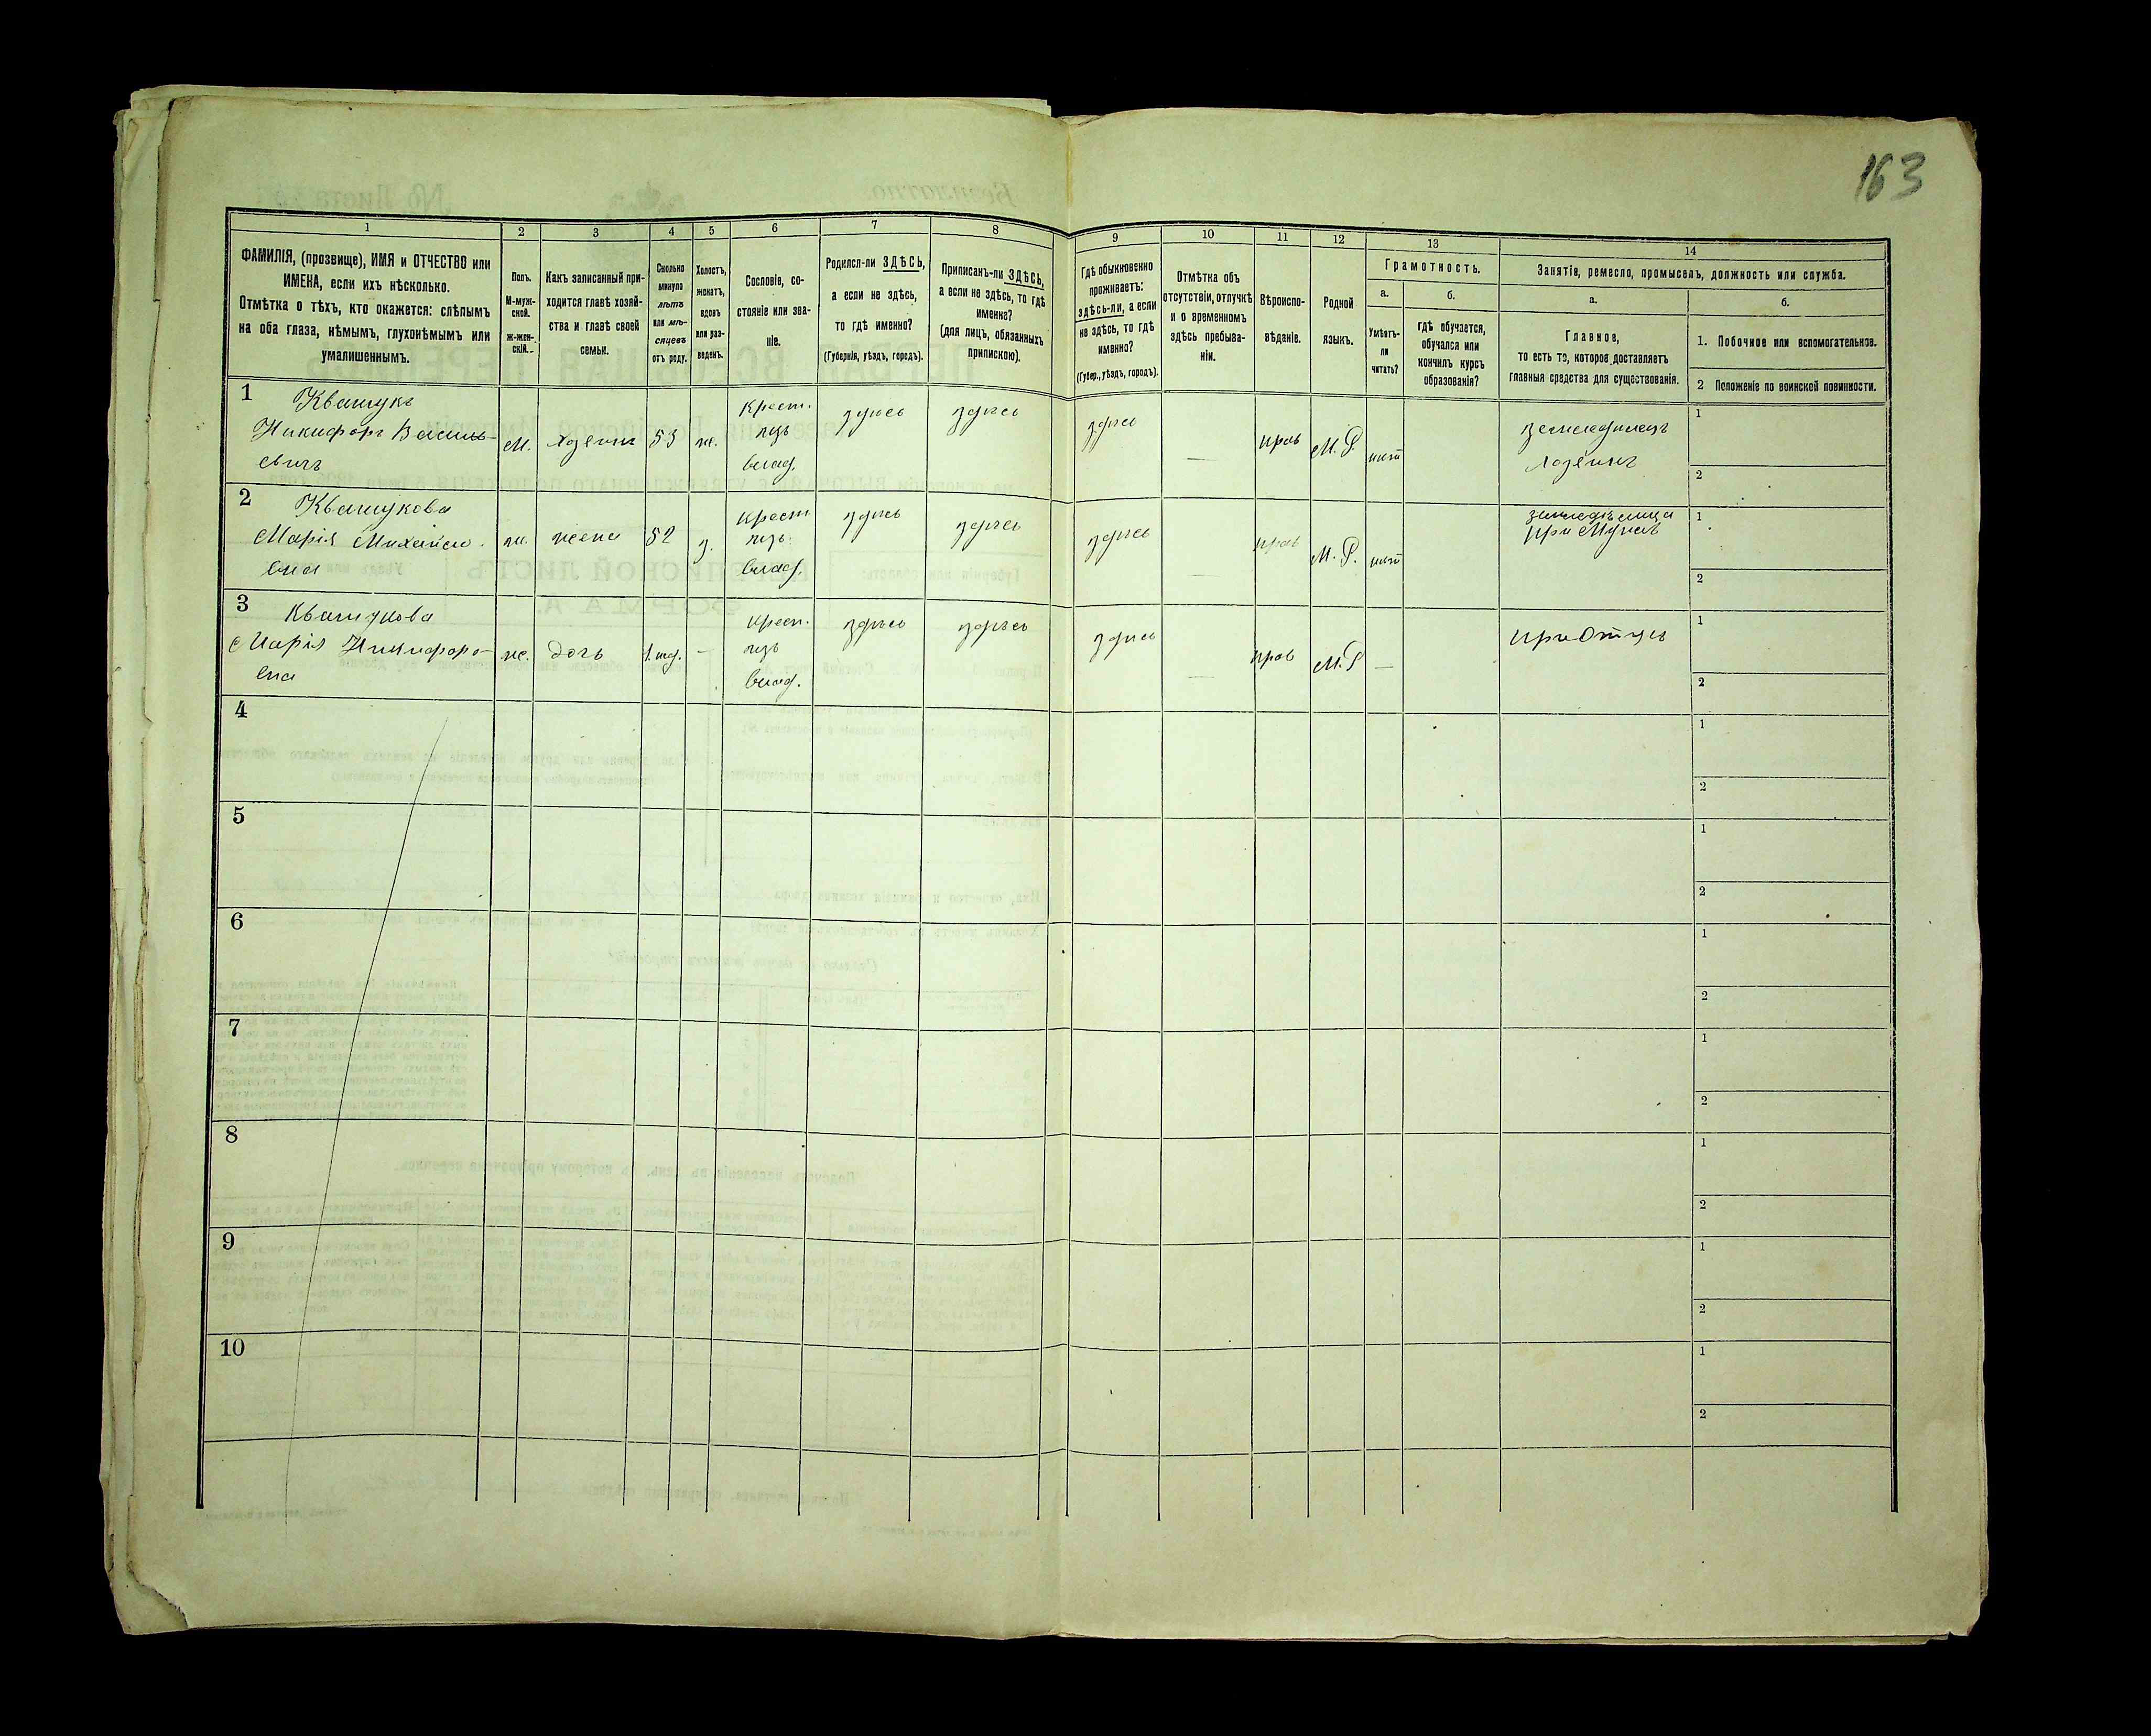 163
1
2
3
4
5
6
7
8
9
10
11
12
13
14
ФАМИЛІЯ, (прозвище), ИМЯ и ОТЧЕСТВО или
ИМЕНА, если ихъ нѣсколько.
Отмѣтка о тѣхъ, кто окажется: слѣпымъ
на оба глаза, нѣмымъ, глухонѣмымъ или
умалишеннымъ.
Полъ.
М-муж-
ской.
ж-жен-
скій.
Какъ записанный при-
ходится главѣ хозяй-
ства и главѣ своей
семьи.
Сколько
минуло
лѣтъ
или мѣ-
сяцевъ
отъ роду.
Холостъ,
женатъ,
вдовъ
или раз-
веденъ.
Сословіе, со-
стояніе или зва-
ніе.
Родился-ли ЗДѢСЬ,
а если не здѣсь,
то гдѣ именно?
(Губернія, уѣздъ, городъ).
Приписанъ-ли ЗДѢСЬ,
а если не здѣсь, то гдѣ
именно?
(для лицъ, обязанныхъ
припискою).
Гдѣ обыкновенно
проживаетъ:
здѣсь-ли, а если
не здѣсь, то гдѣ
именно?
(Губер., уѣздъ, городъ).
Отмѣтка объ
отсутствіи, отлучкѣ
и о временномъ
здѣсь пребыва-
ніи.
Вѣроиспо-
вѣданіе.
Родной
языкъ.
Грамотность.
а.
Умѣетъ-
ли
читать?
б.
гдѣ обучается,
обучался или
кончилъ курсъ
образованія?
Занятіе, ремесло, промыселъ, должность или служба.
а.
Главное,
то есть то, которое доставляетъ
главныя средства для существованія.
б.
1. Побочное или вспомогательное.
2 Положеніе по воинской повинности.
1 Квашукъ
Никифоръ Василь-
евичъ
М. хозяинъ 53 ж.
Крест.
изъ
влад.
здѣсь здѣсь здѣсь — прав М. Р. нѣтъ
земледѣлецъ
хозяинъ
1
2
2 Квашукова
Марія Михайло-
вна
ж. жена 52 з.
Крест.
изъ
влад.
здѣсь здѣсь здѣсь — прав М. Р. нѣтъ
земледѣлица
при Мужѣ
1
2
3 Квашукова
Марія Никифоро-
вна
ж. дочь 1. —
Крест.
изъ
влад.
здѣсь здѣсь здѣсь — прав М. Р —
при Отцѣ
1
2
4
1
2
5
1
2
6
1
2
7
1
2
8
1
2
9
1
2
10
1
2